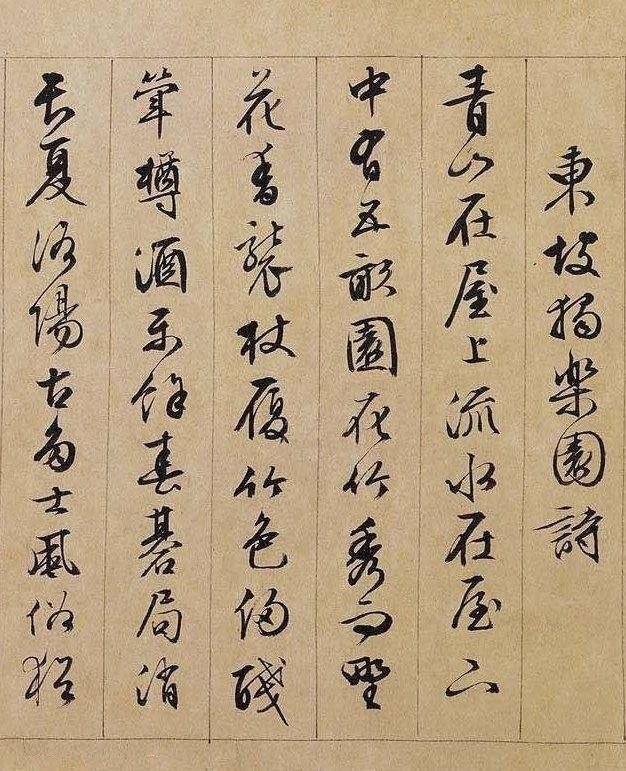 東坡獨樂園詩
青山在屋上流水在屋下
中有五畝園花竹秀而野
花香襲杖屨竹色侵盞
斝樽酒樂餘春碁局消
長夏洛陽古多士風俗猶